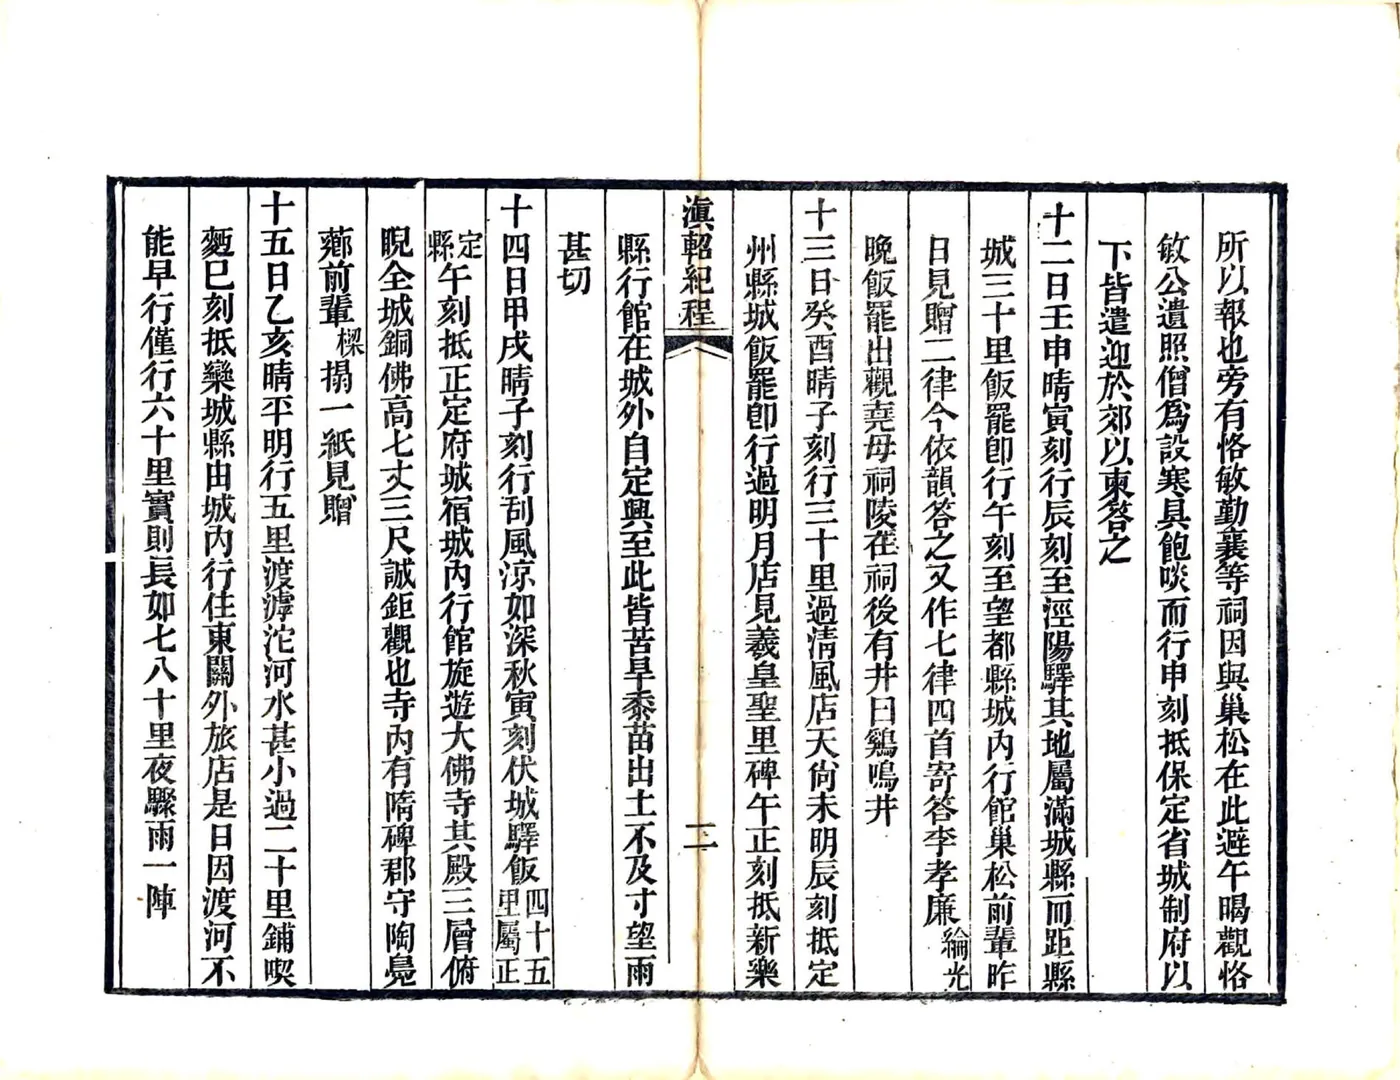 所以報也旁有恪敏勤襄等祠因與巢松在此避午暍觀恪
敏公遺照僧爲設寒具飽啖而行申刻抵保定省城制府以
下皆遣迎於郊以柬答之
十二日壬申晴寅刻行辰刻至涇陽驛其地屬滿城縣而距縣
城三十里飯罷卽行午刻至望都縣城內行館巢松前輩昨
日見贈二律今依韻答之又作七律四首寄答李孝廉綸光
晚飯罷出觀堯母祠陵在祠後有井曰鷄鳴井
十三日癸酉晴子刻行三十里過清風店天尙未明辰刻抵定
州縣城飯罷卽行過明月店見羲皇聖里碑午正刻抵新樂
滇軺紀程
二
縣行館在城外自定興至此皆苦旱黍苗出土不及寸望雨
甚切
十四日甲戌晴子刻行刮風涼如深秋寅刻伏城驛飯四十五里屬正
定縣午刻抵正定府城宿城內行館旋遊大佛寺其殿三層俯
睨全城銅佛高七丈三尺誠鉅觀也寺內有隋碑郡守陶鳧
薌前輩樑搨一紙見贈
十五日乙亥晴平明行五里渡滹沱河水甚小過二十里鋪喫
麪巳刻抵欒城縣由城內行住東關外旅店是日因渡河不
能早行僅行六十里實則長如七八十里夜驟雨一陣